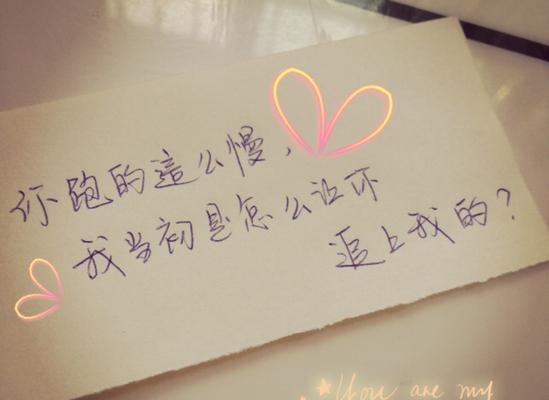 你跑的這么慢，
我当初是怎么让你
追上我的？
You are my